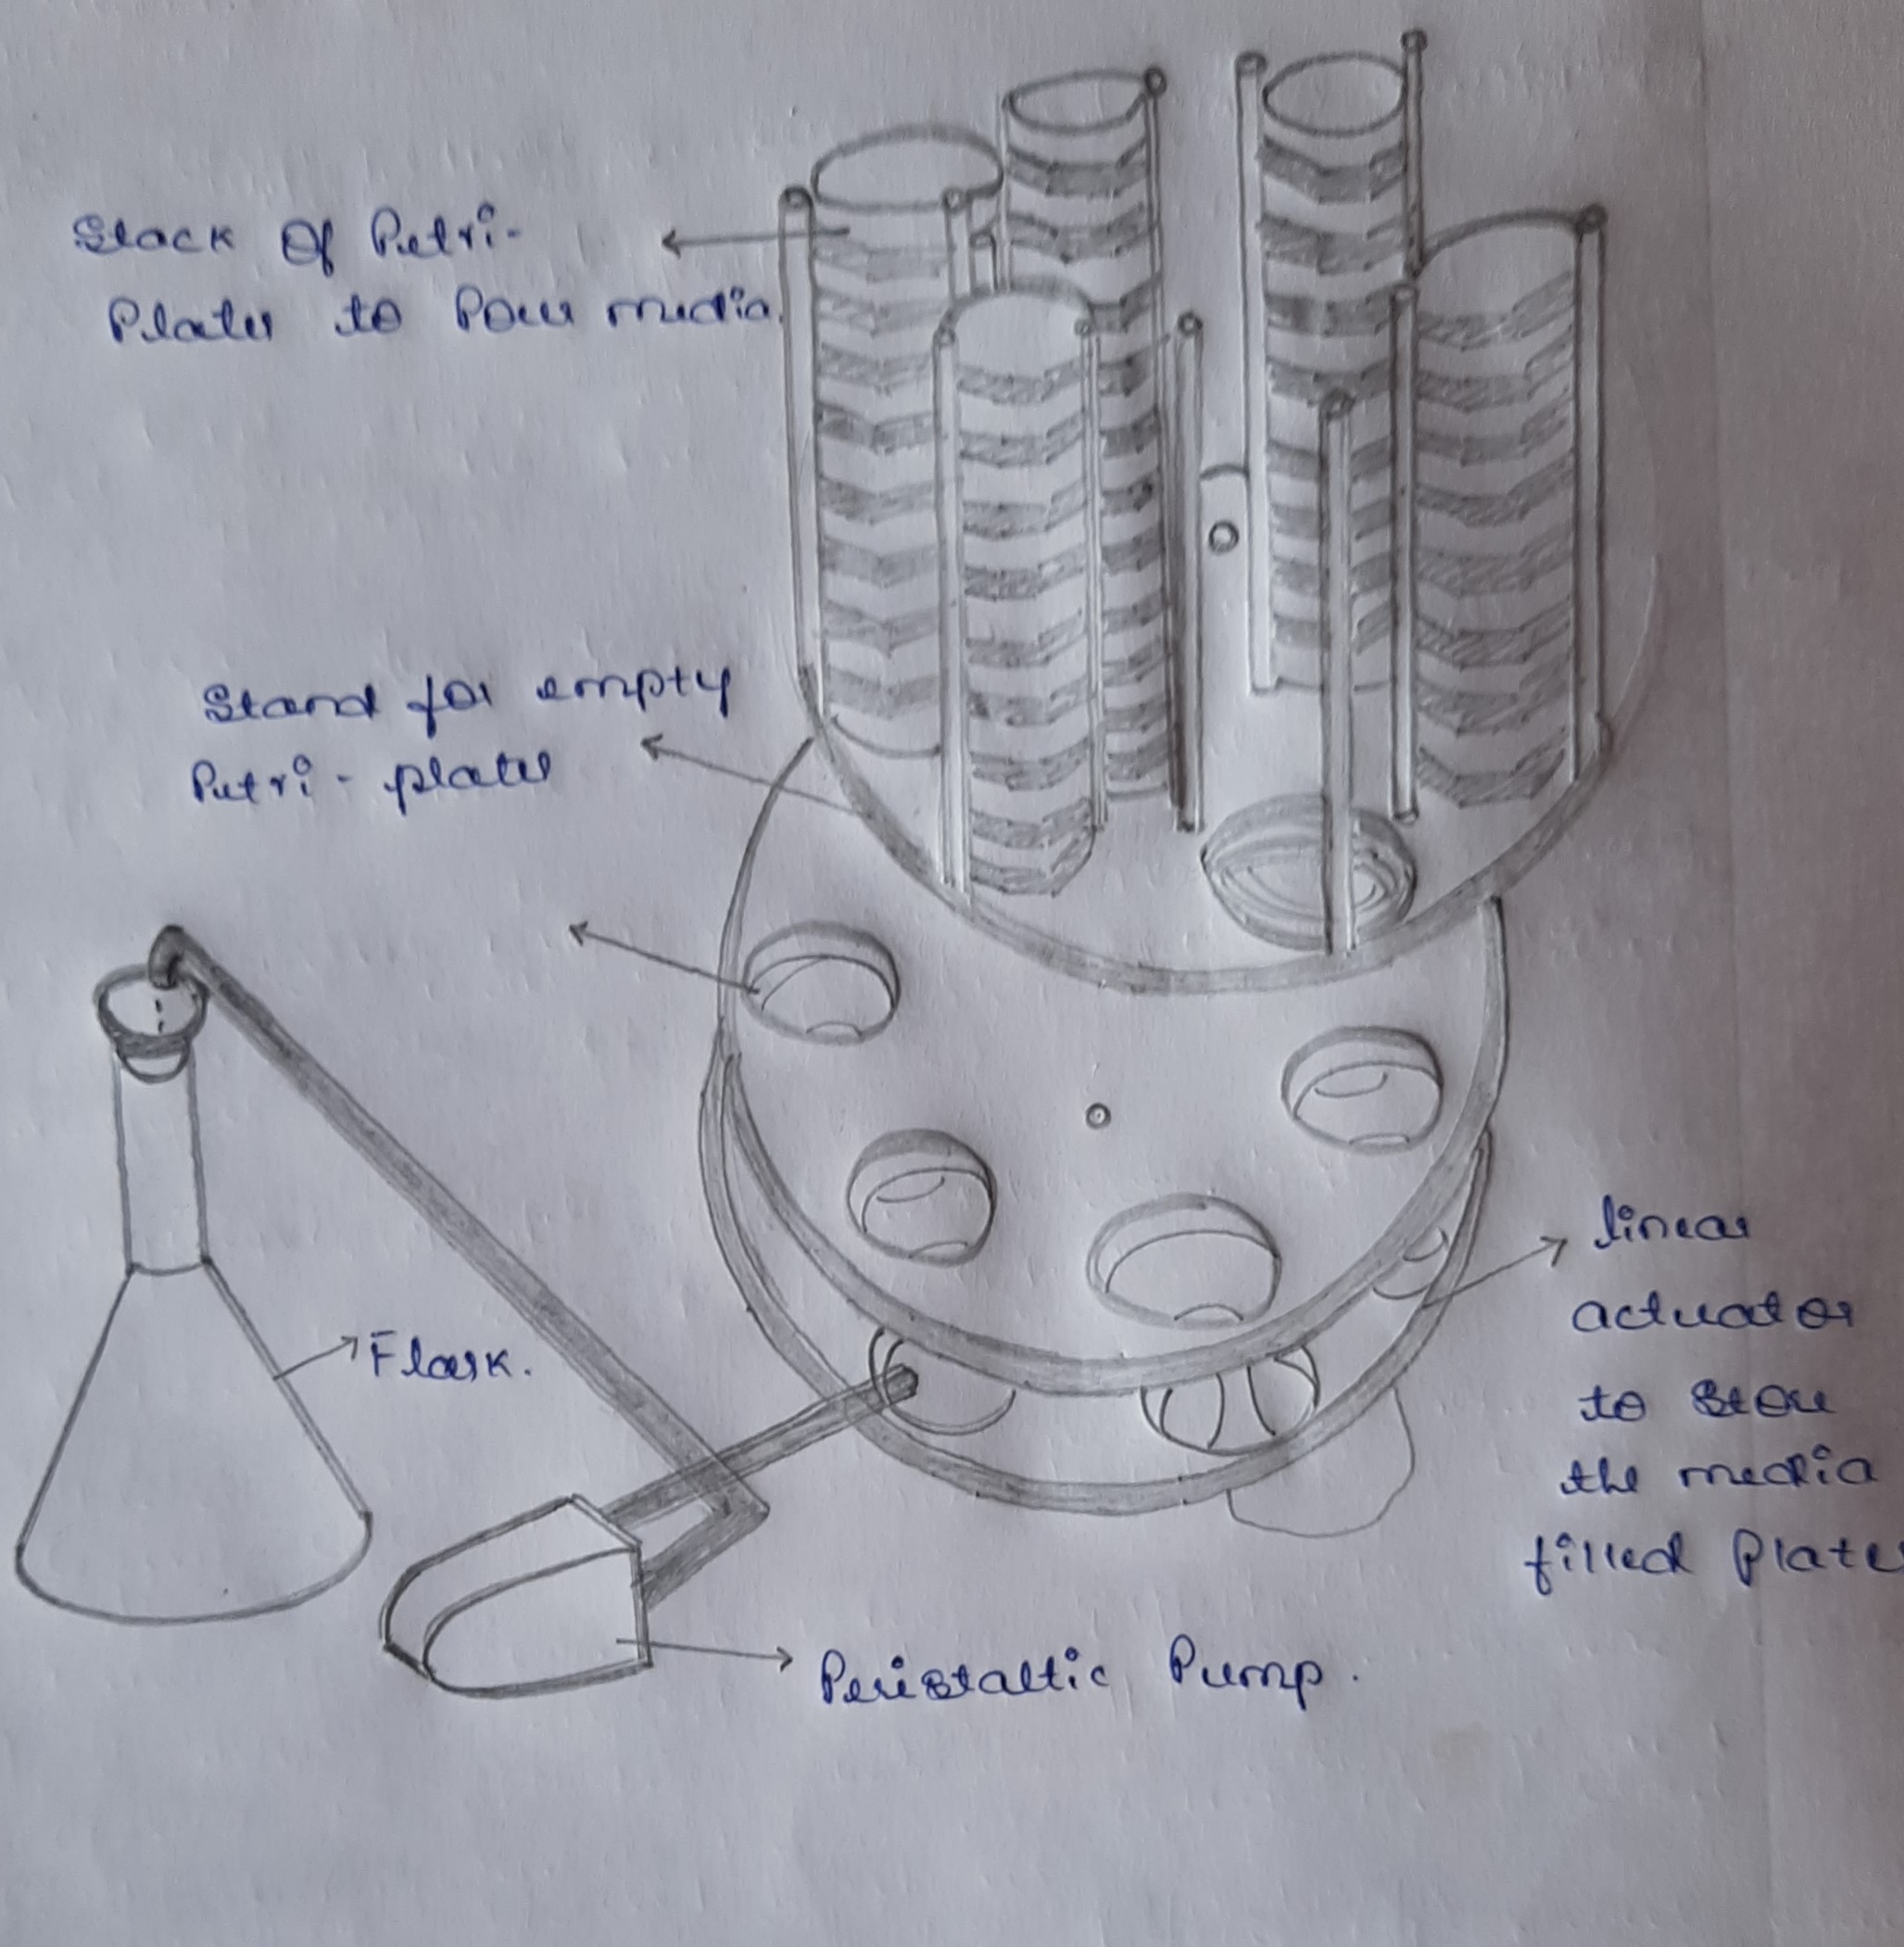 Stack Of Petri-
Plates to Pour media.
Stand for empty
Petri - plates
Flask.
linear
actuator
to store
the media
filled Plates
Peristaltic Pump.